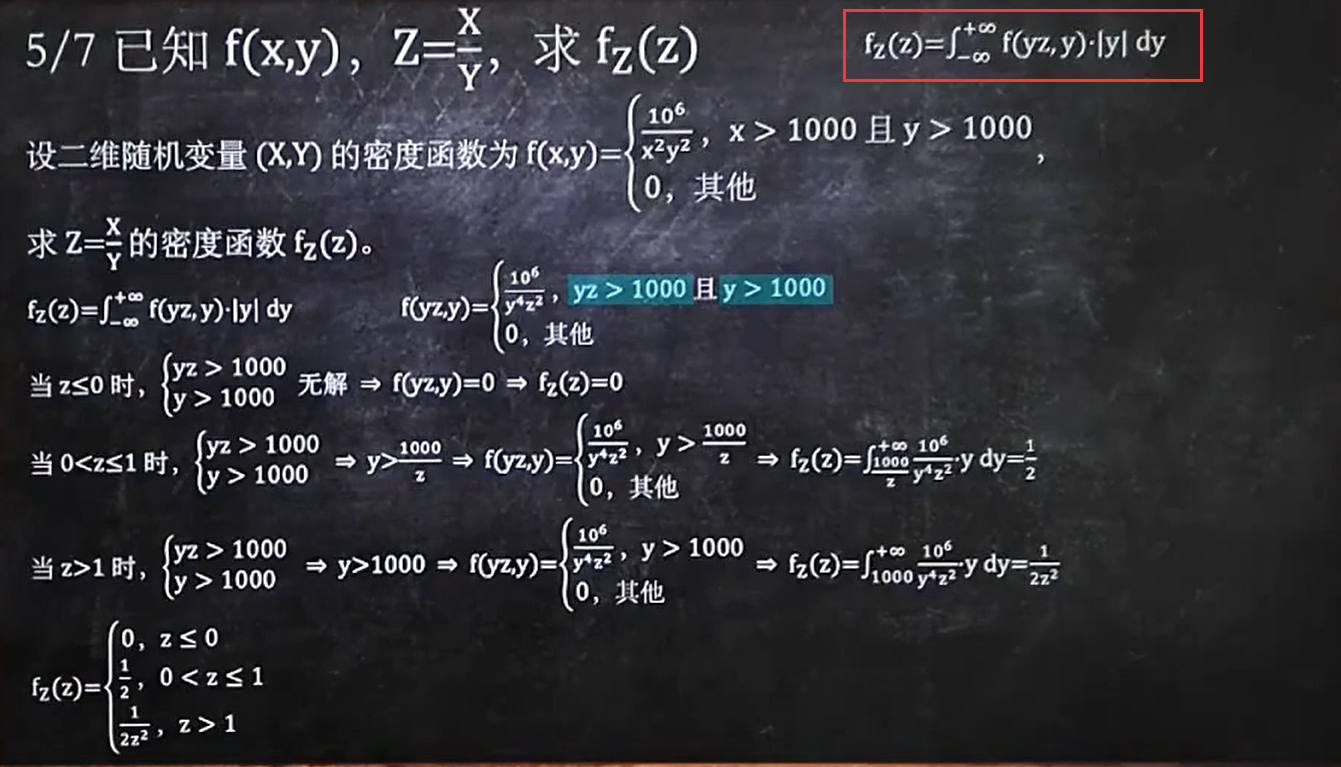 5/7 已知 f(x,y)，Z=X/Y，求 f_Z(z)
f_Z(z)=∫_{-∞}^{+∞} f(yz,y)·|y| dy
设二维随机变量 (X,Y) 的密度函数为 f(x,y)={10⁶/(x²y²)，x > 1000 且 y > 1000
0，其他 ，
求 Z=X/Y 的密度函数 f_Z(z)。
f_Z(z)=∫_{-∞}^{+∞} f(yz,y)·|y| dy f(yz,y)={10⁶/(y⁴z²)，yz > 1000 且 y > 1000
0，其他
当 z≤0 时，{yz > 1000
y > 1000 无解 ⇒ f(yz,y)=0 ⇒ f_Z(z)=0
当 0<z≤1 时，{yz > 1000
y > 1000 ⇒ y>1000/z ⇒ f(yz,y)={10⁶/(y⁴z²)，y > 1000/z
0，其他 ⇒ f_Z(z)=∫_{1000/z}^{+∞} 10⁶/(y⁴z²)·y dy=1/2
当 z>1 时，{yz > 1000
y > 1000 ⇒ y>1000 ⇒ f(yz,y)={10⁶/(y⁴z²)，y > 1000
0，其他 ⇒ f_Z(z)=∫_{1000}^{+∞} 10⁶/(y⁴z²)·y dy=1/(2z²)
f_Z(z)={0，z ≤ 0
1/2，0 < z ≤ 1
1/(2z²)，z > 1